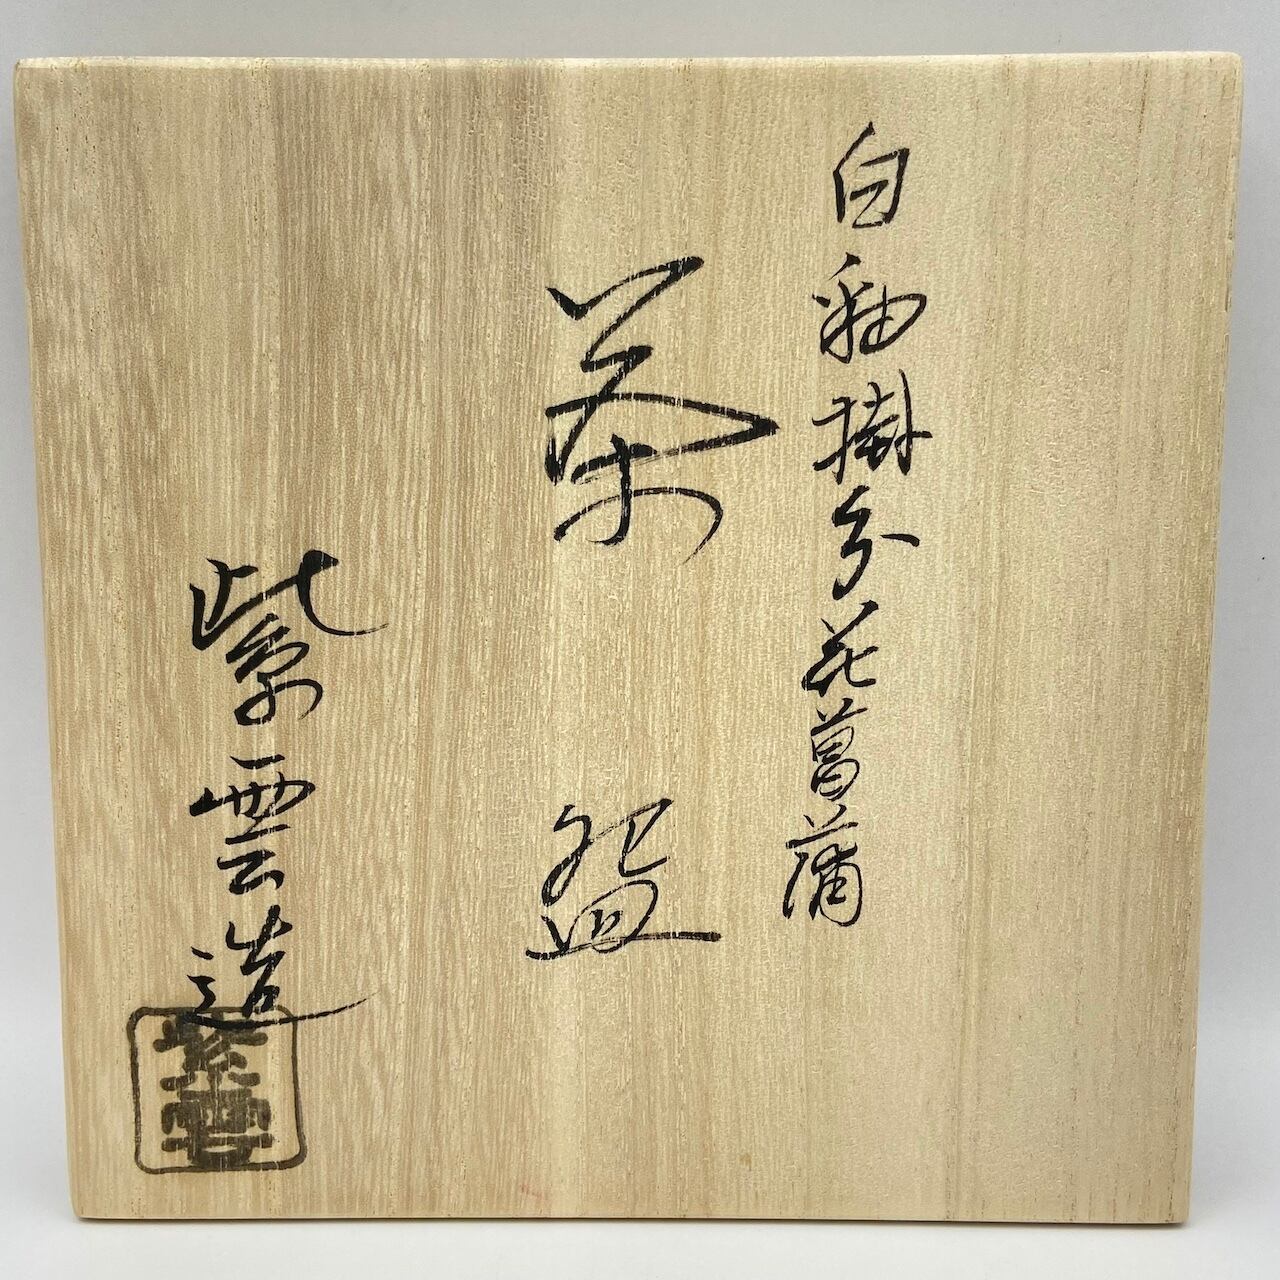 白釉掛分花菖蒲
茶盌
紫雲造
紫雲